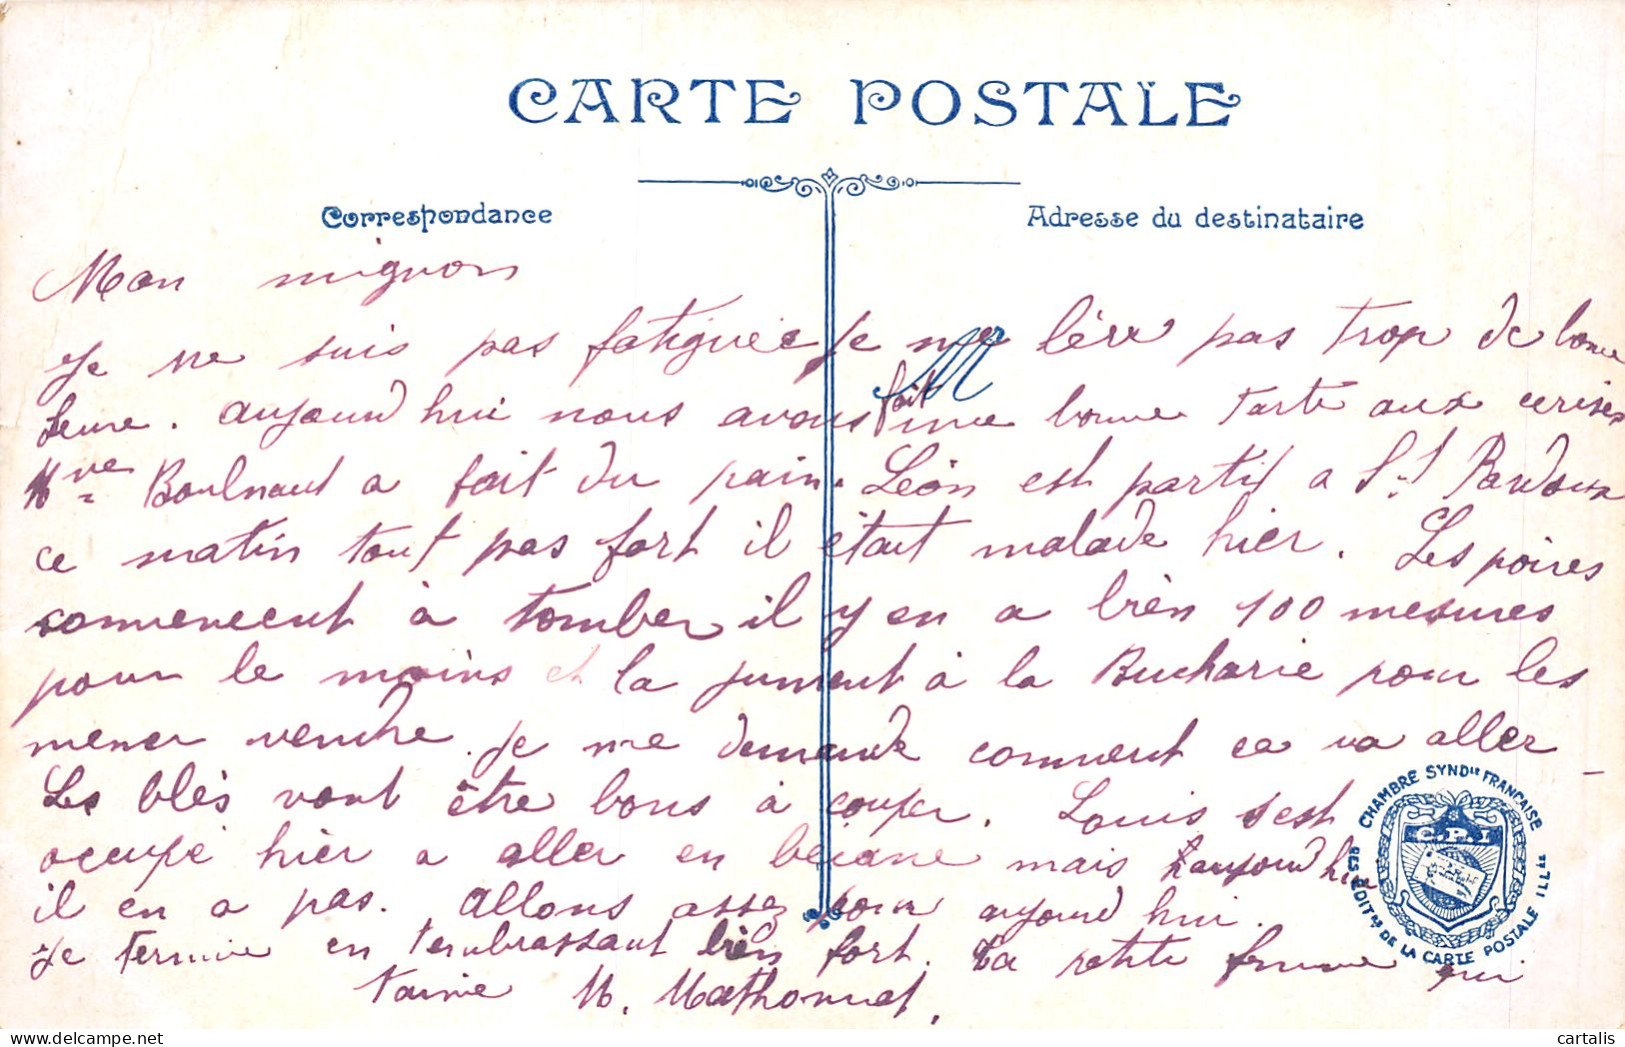 CARTE POSTALE
Correspondance
Adresse du destinataire
Mon mignon
Je ne suis pas fatiguée je me lève pas trop de bonne
heure. aujourd hui nous avons fait une bonne tarte aux cerises
Mme Boulnaud a fait du pain. Léon est partit a St Pardoux
ce matin tout pas fort il était malade hier. Les poires
commencent à tomber il y en a bien 100 mesures
pour le moins et la jument à la Bucharie pour les
mener vendre. je me demande comment ca va aller
Les blés vont être bons à couper. Louis s'est
occupé hièr a aller en mais aujourd hui
il en a pas. Allons assez pour aujourd hui.
Je termine en t'embrassant bien fort. ta petite femme qui
t'aime M. Mathonnet.
CHAMBRE SYNDle FRANÇAISE
DES EDITrs DE LA CARTE POSTALE ILLée
C.P.I
cartalis